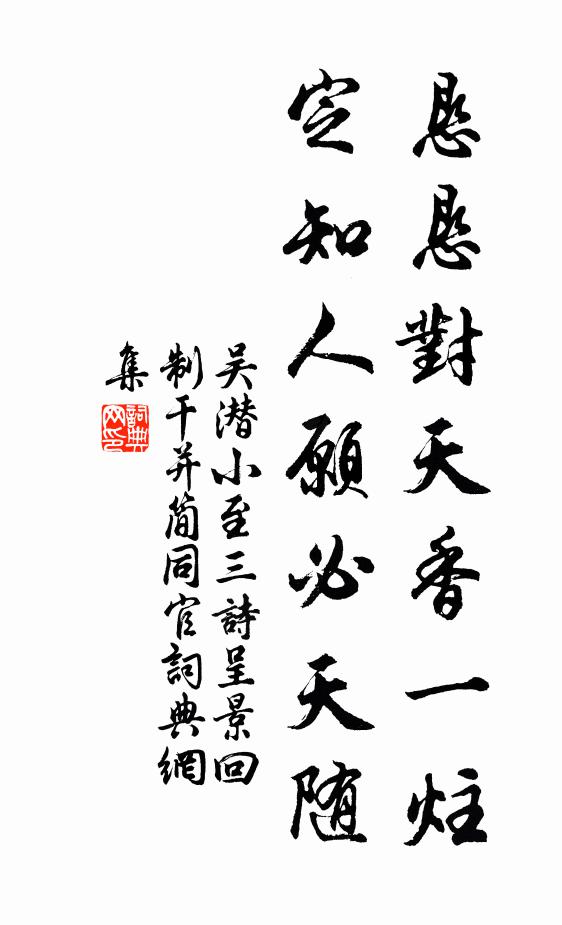 恳恳對天香一炷
定知人願必天随
吴潜小至三詩呈景回
制干并简同官詞典網
集
詞典网印